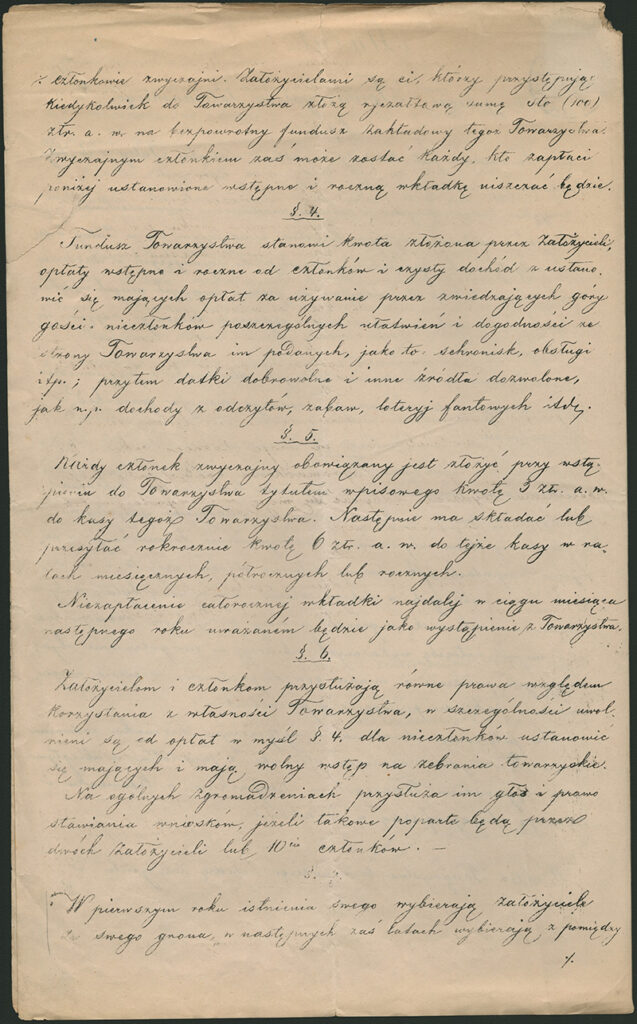 ./. członkowie zwyczajni. Założycielami są ci, którzy przystępując
kiedykolwiek do Towarzystwa złożą ryczałtową sumę sto (100)
złr. a. w. na bezpowrotny fundusz zakładowy tegoż Towarzystwa.
Zwyczajnym członkiem zaś może zostać każdy, kto zapłaci
poniżej ustanowione wstępne i roczną wkładkę uiszczać będzie.
§. 4.
Fundusz Towarzystwa stanowi kwota złożona przez Założycieli,
opłaty wstępne i roczne od członków i czysty dochód z ustano,
wić się mających opłat za używanie przez zwiedzających góry
gości - nieczłonków poszczególnych ułatwień i dogodności ze
strony Towarzystwa im podanych, jako to: schronisk, obsługi
itp.; przytem datki dobrowolne i inne źródła dozwolone,
jak n.p. dochody z odczytów, zabaw, loteryj fantowych itd.
§. 5.
Każdy członek zwyczajny obowiązany jest złożyć przy wstą,
pieniu do Towarzystwa tytułem wpisowego kwotę 3 złr. a. w.
do kasy tegoż Towarzystwa. Następnie ma składać lub
przesyłać rokrocznie kwotę 6 złr. a. w. do tejże kasy w ra,
tach miesięcznych, półrocznych lub rocznych.
Niezapłacenie całorocznej wkładki najdalej w ciągu miesiąca
następnego roku uważanem będzie jako wystąpienie z Towarzystwa.
§. 6.
Założycielom i członkom przysłużają równe prawa względem
korzystania z własności Towarzystwa, w szczególności uwol,
nieni są od opłat w myśl §. 4. dla nieczłonków ustanowić
się mających i mają wolny wstęp na zebrania towarzyskie.
Na ogólnych Zgromadzeniach przysłuża im głos i prawo
stawiania wniosków, jeżeli takowe poparte będą przez
dwóch Założycieli lub 10ciu członków. —
§. 7.
W pierwszym roku istnienia swego wybierają założyciele
ze swego grona, w następnych zaś latach wybierają z pomiędzy
./.